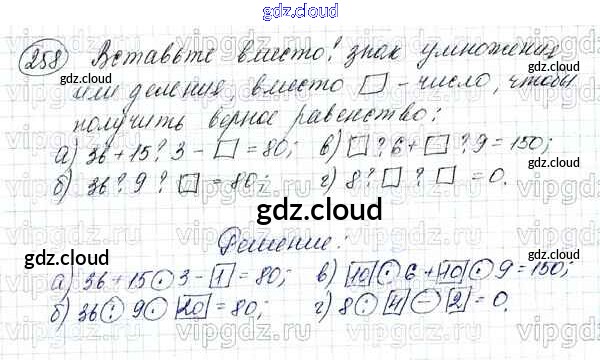 gdz.cloud
258 Вставьте вместо! знак умножения
или деления, вместо □ - число, чтобы
получить верное равенство:
а) 36 + 15 ? 3 - □ = 80; в) □ ? 6 + □ ? 9 = 150;
б) 36 ? 9 ? □ = 80; г) 8 ? □ ? □ = 0.
gdz.cloud
Решение:
а) 36 + 15 · 3 - 1 = 80; в) 10 · 6 + 10 · 9 = 150;
б) 36 : 9 · 20 = 80; г) 8 · 4 - 2 = 0.
gdz.cloud
gdz.cloud
gdz.cloud
gdz.cloud
vipgdz
vipgdz